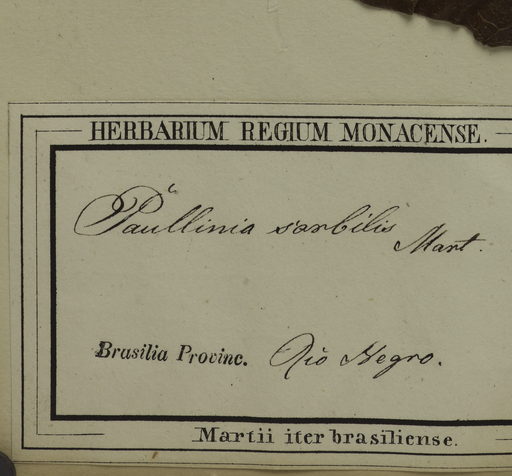 HERBARIUM REGIUM MONACENSE.
Paullinia sorbilis Mart.
Brasilia Provinc. Rio Negro.
Martii iter brasiliense.